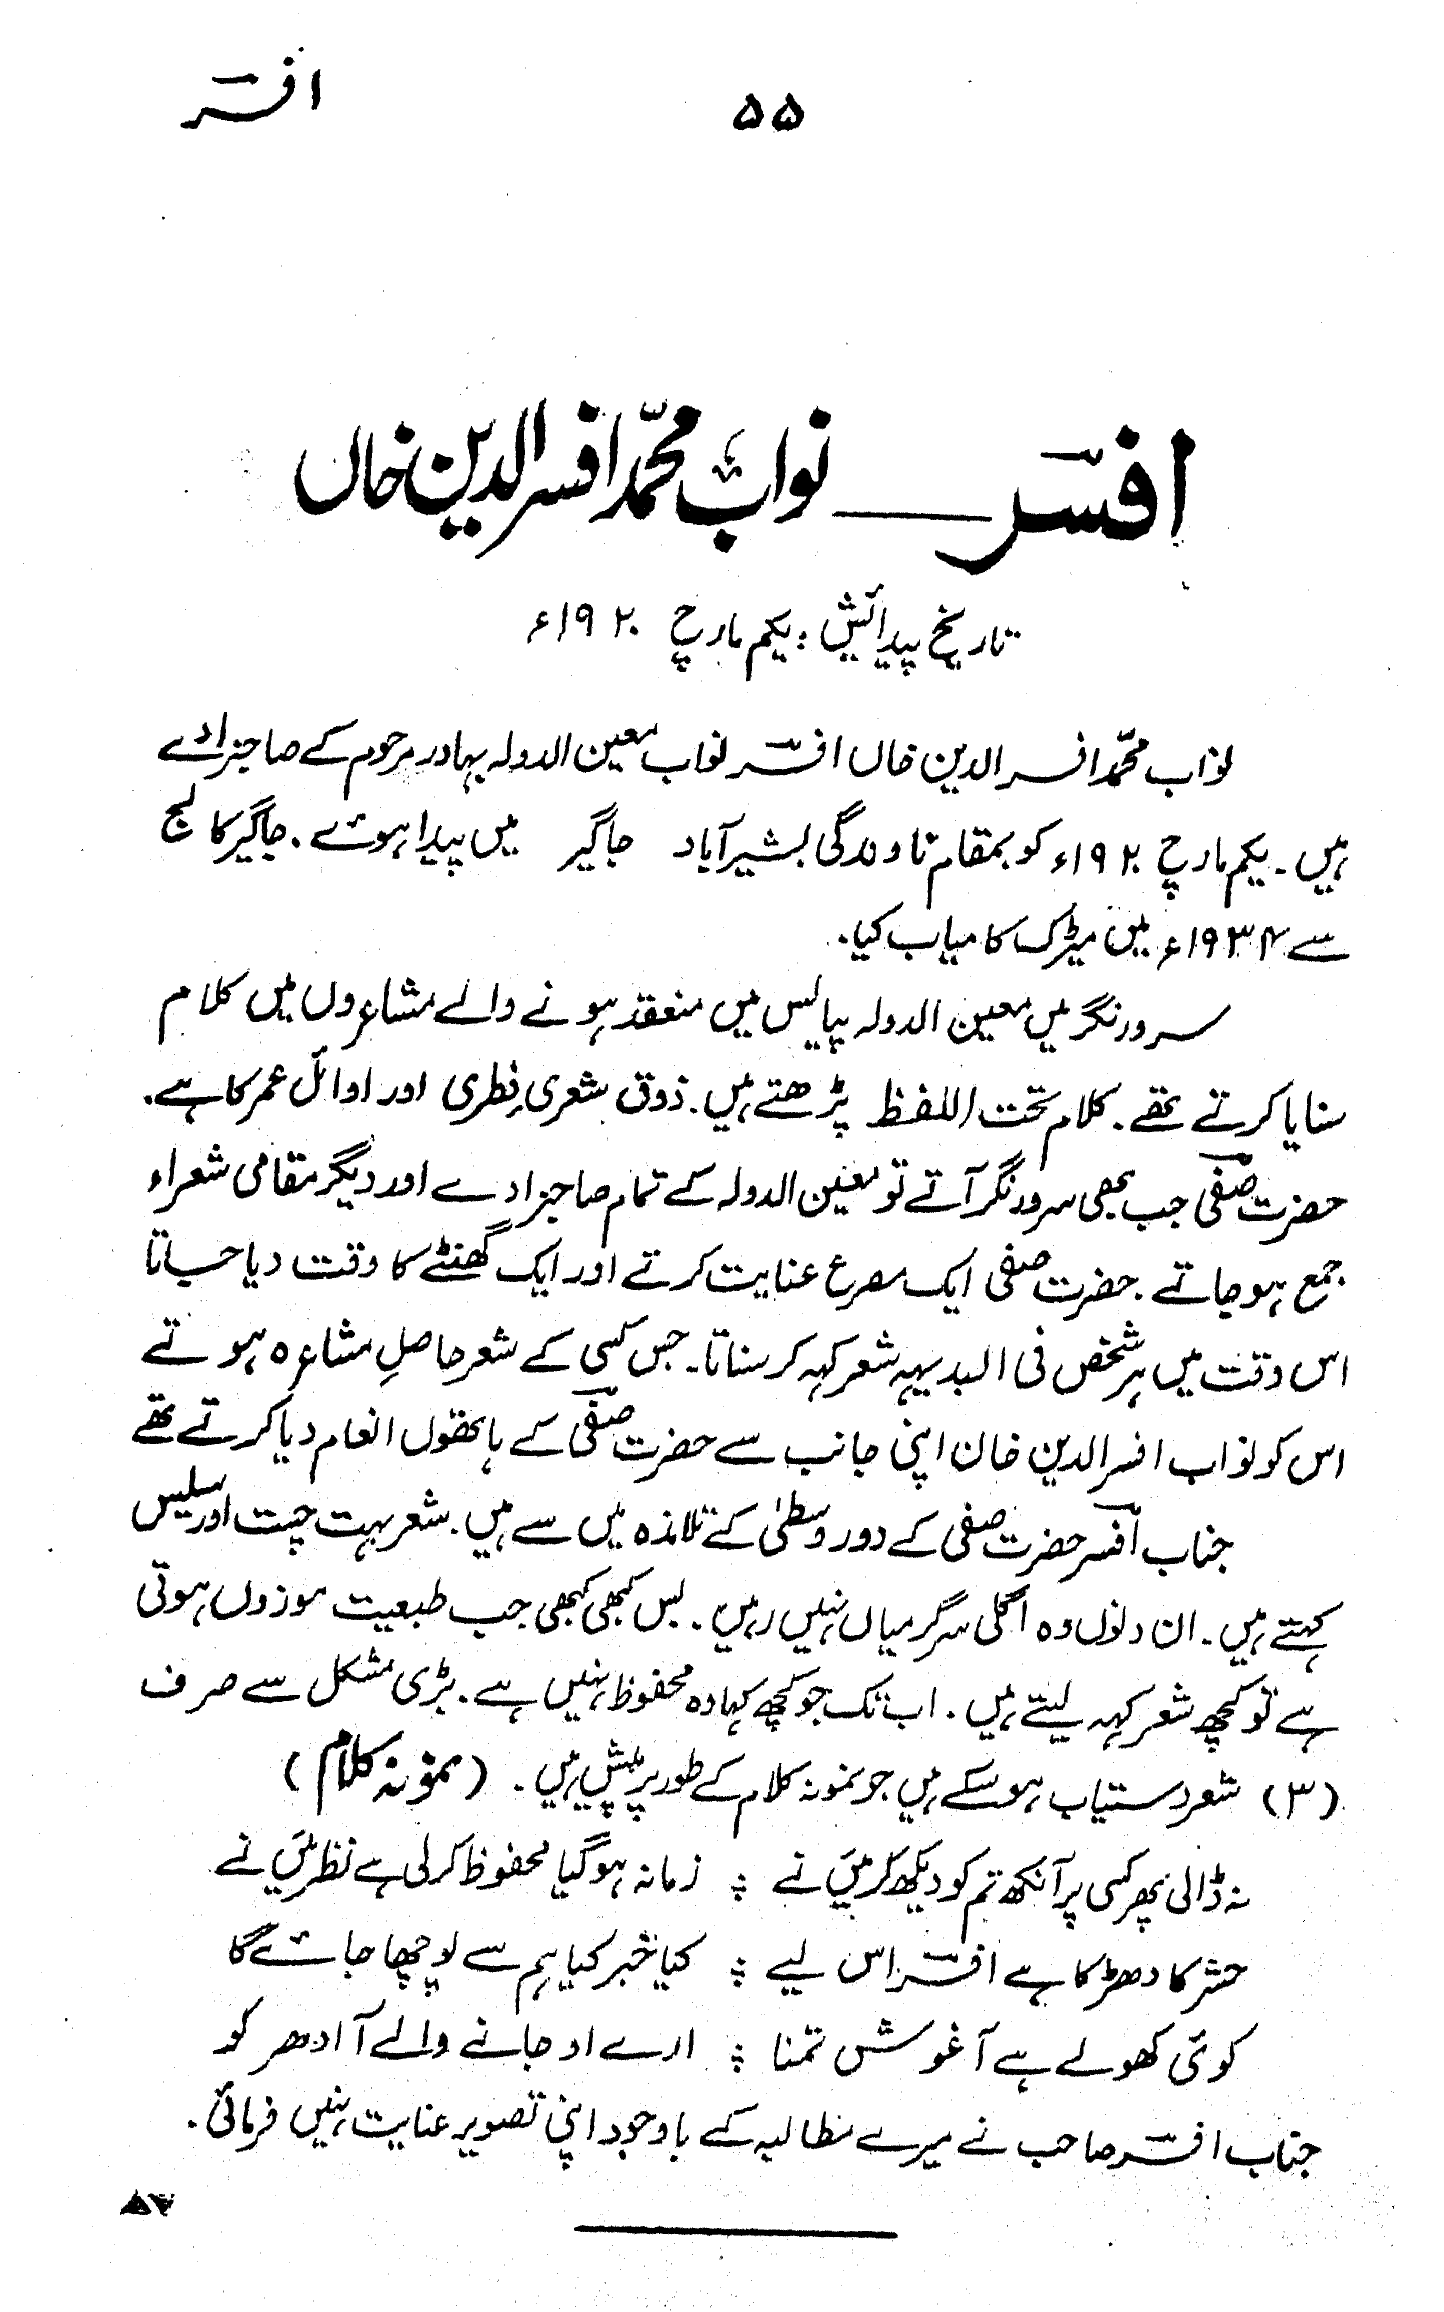 ۵۵ افسؔر
افسؔر ــــ نواب محمّد افسر الدین خاں
تاریخ پیدائش : یکم مارچ ۱۹۲۰ء
نواب محمّد افسر الدین خاں افسؔر نواب معین الدولہ بہادر مرحوم کے صاحبزادے
ہیں ۔ یکم مارچ ۱۹۲۰ء کو بمقام تاوندگی بشیر آباد جاگیر میں پیدا ہوئے ۔ جاگیر کالج
سے ۱۹۳۴ء میں میٹرک کامیاب کیا ۔
سرور نگر میں معین الدولہ پیالیس میں منعقد ہونے والے مشاعروں میں کلام
سنایا کرتے تھے ۔ کلام تحت اللفظ پڑھتے ہیں ۔ ذوق شعری فطری اور اوائل عمر کا ہے ۔
حضرت صفیؔ جب بھی سرور نگر آتے تو معین الدولہ کے تمام صاحبزادے اور دیگر مقامی شعراء
جمع ہو جاتے ۔ حضرت صفی ایک مصرع عنایت کرتے اور ایک گھنٹے کا وقت دیا جاتا
اس وقت میں ہر شخص فی البدیہہ شعر کہہ کر سناتا ۔ جس کسی کے شعر حاصلِ مشاعرہ ہوتے
اس کو نواب افسر الدین خان اپنی جانب سے حضرت صفیؔ کے ہاتھوں انعام دیا کرتے تھے
جناب افسؔر حضرت صفی کے دور وسطیٰ کے تلامذہ میں سے ہیں ۔ شعر بہت چست اور سلیس
کہتے ہیں ۔ ان دنوں وہ اگلی سرگرمیاں نہیں رہیں ۔ بس کبھی کبھی جب طبعیت موزوں ہوتی
ہے تو کچھ شعر کہہ لیتے ہیں ۔ اب تک جو کچھ کہا وہ محفوظ نہیں ہے ۔ بڑی مشکل سے صرف
(۳) شعر دستیاب ہو سکے ہیں جو نمونہ کلام کے طور پر پیش ہیں ۔ (نمونہ کلام)
نہ ڈالی پھر کسی پر آنکھ تم کو دیکھ کر میں نے ؛ زمانہ ہو گیا محفوظ کر لی ہے نظر میں نے
حشر کا دھڑکا ہے افسؔر اس لیے ؛ کیا خبر کیا ہم سے پوچھا جائے گا
کوئی کھولے ہے آغوش تمنا ؛ ارے او جانے والے آ ادھر کو
جناب افسؔر صاحب نے میرے مطالبہ کے باوجود اپنی تصویر عنایت نہیں فرمائی ۔